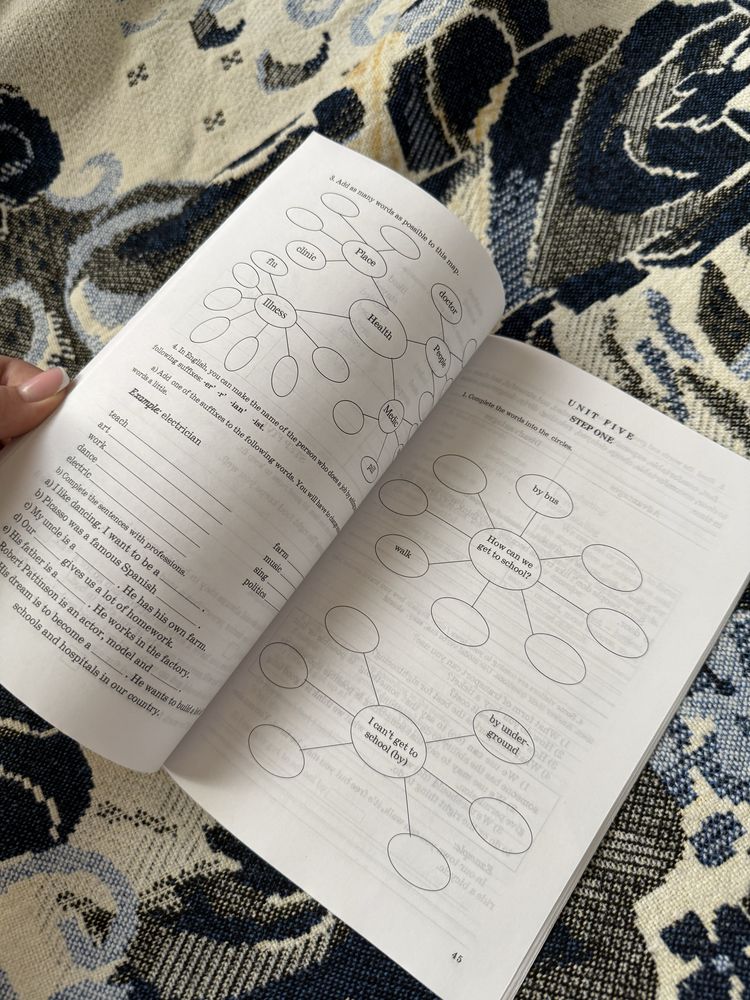 3. Add as many words as possible to this map.
Place
clinic
flu
Illness
Health
doctor
People
Medic
pill
4. In English, you can make the name of the person who does a job by
following suffixes: -er' -r' -ian' -ist.
a) Add one of the suffixes to the following words. You will have to change
words a little.
Example: electrician
teach
art
work
dance
electric
farm
music
sing
politics
b) Complete the sentences with professions.
a) I like dancing. I want to be a
b) Picasso was a famous Spanish
c) My uncle is a . He has his own farm.
d) Our gives us a lot of homework.
e) His father is a . He works in the factory.
Robert Pattinson is an actor, model and .
His dream is to become a . He wants to build
schools and hospitals in our country.
UNIT FIVE
STEP ONE
1. Complete the words into the circles.
by bus
How can we
get to school?
walk
I can't get to
school (by)
by under-
ground
45